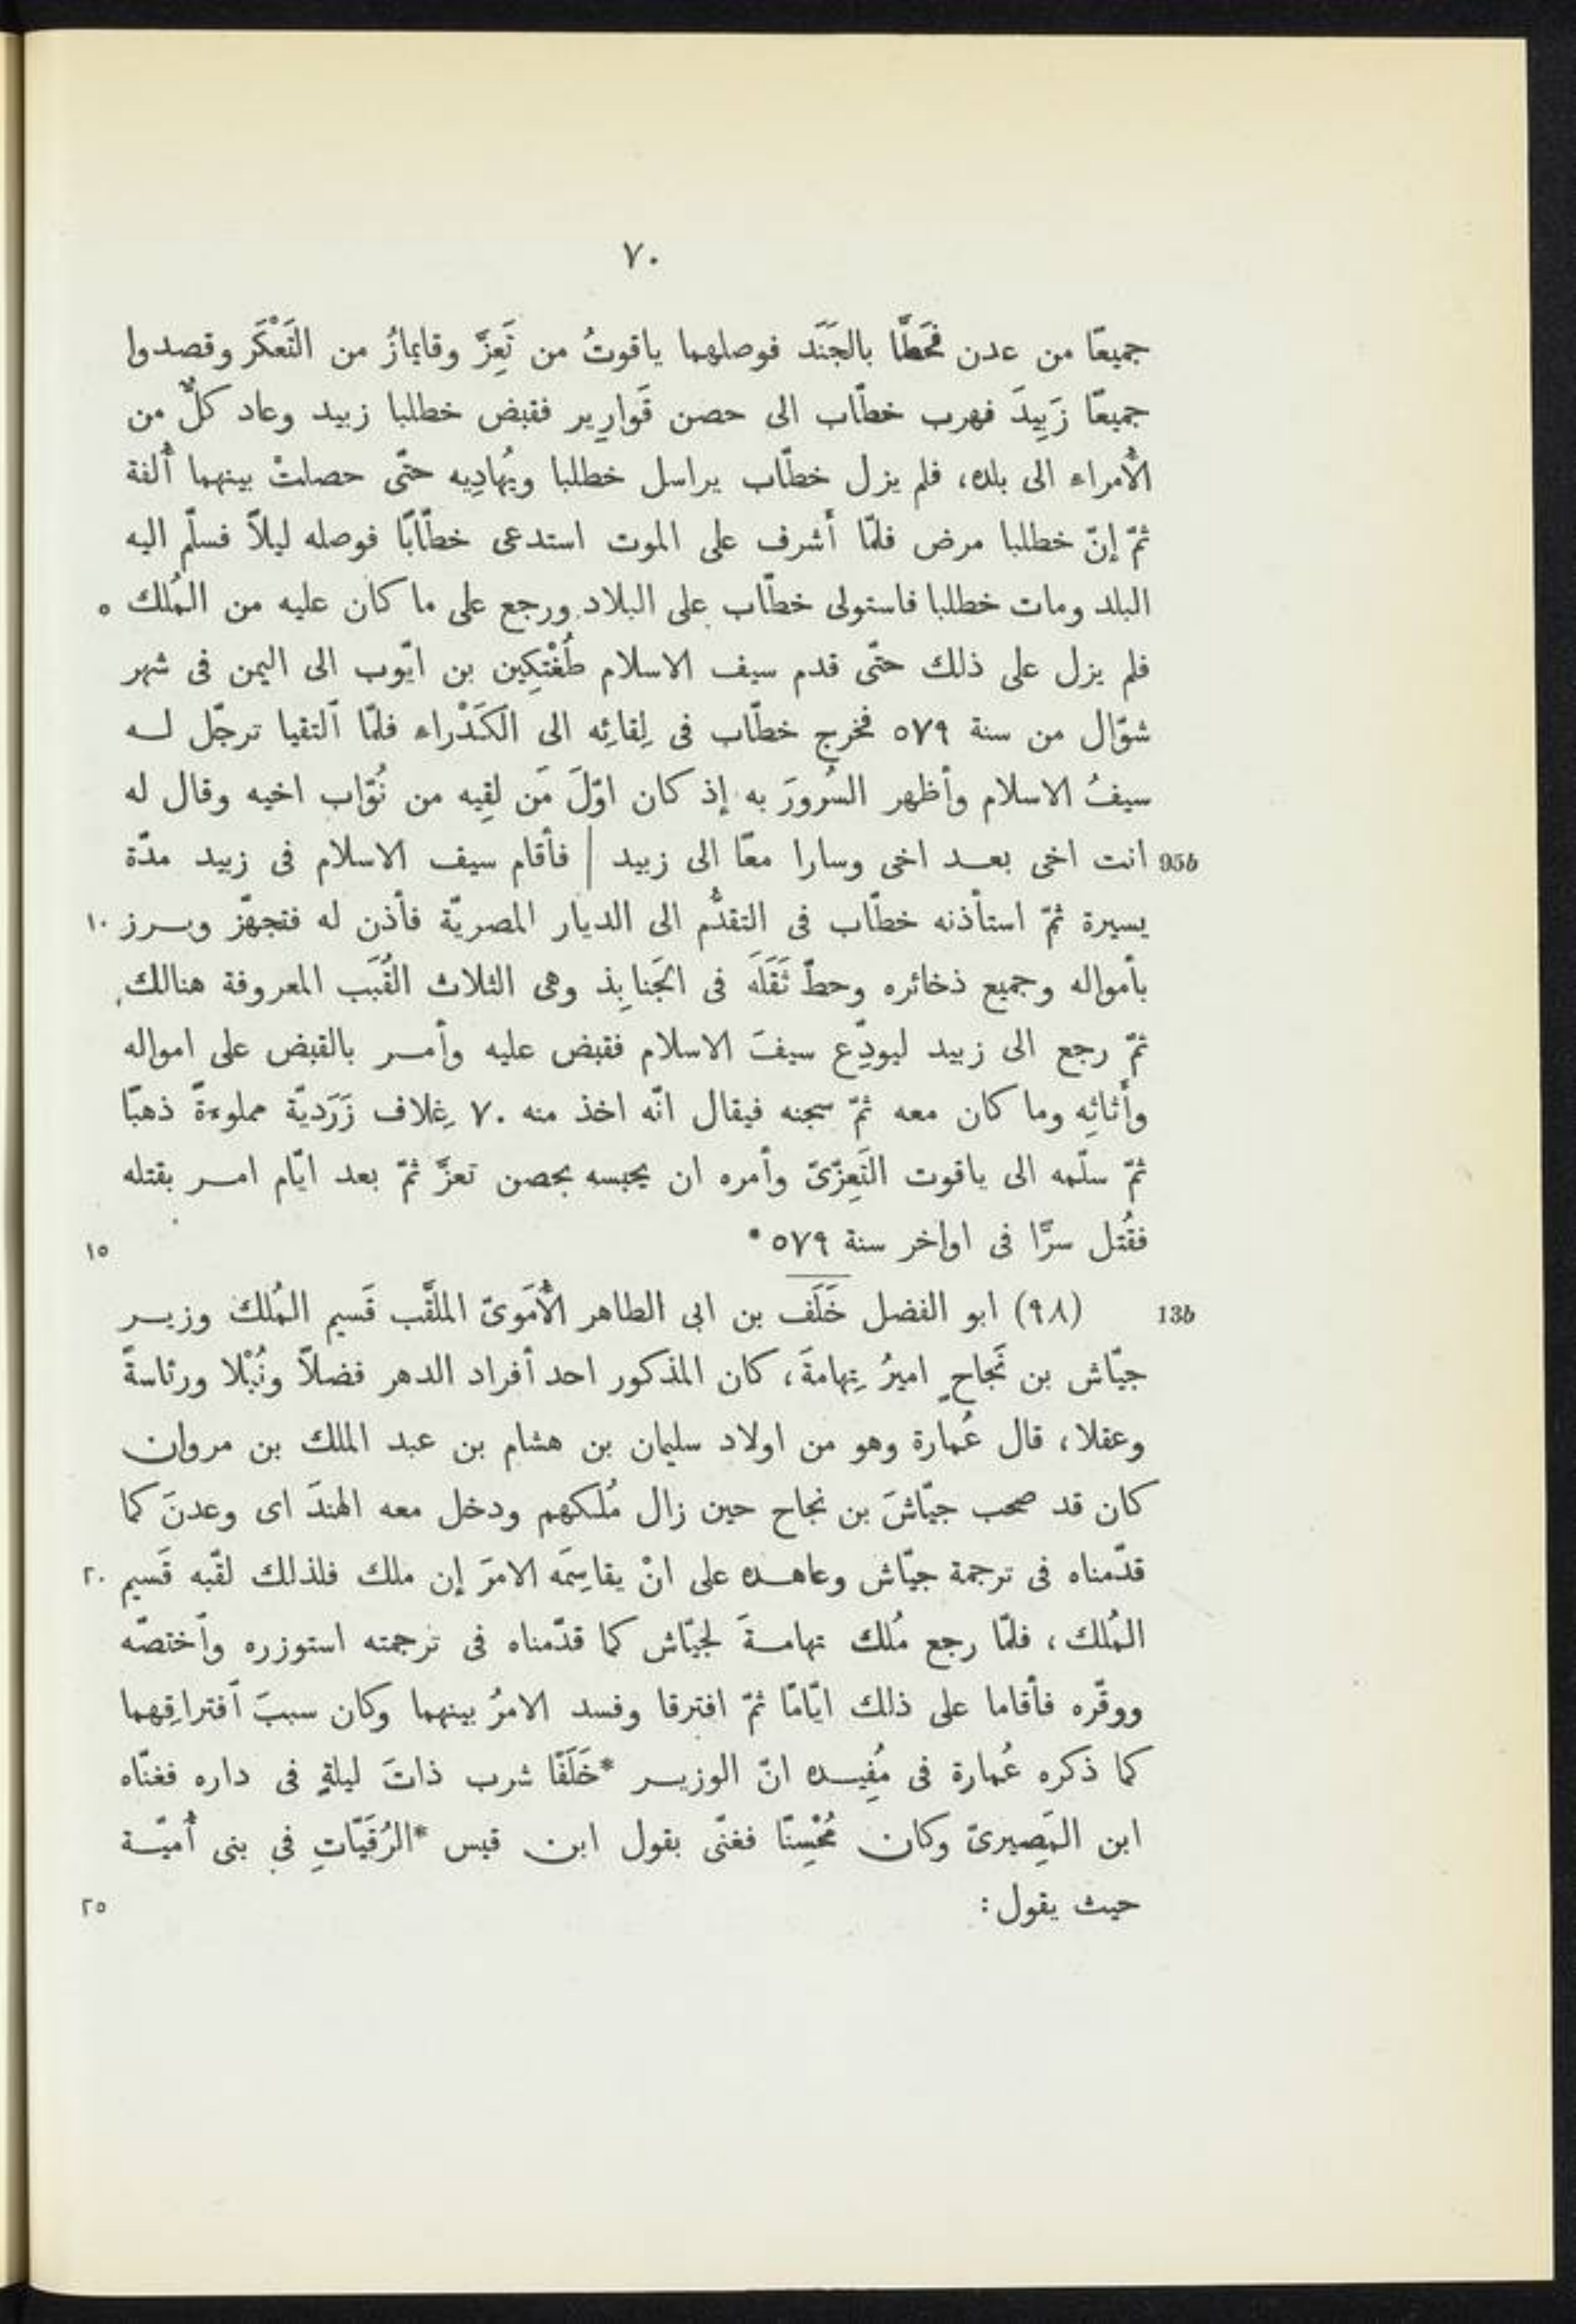 ٧٠
جميعًا من عدن فحَطَّا بالجَنَد فوصلهما ياقوتُ من تَعِزَّ وقايمازُ من التَعْكَر وقصدوا
جميعًا زَبِيدَ فهرب خطّاب الى حصن قَوارير فقبض خطلبا زبيد وعاد كلٌّ من
الأُمراء الى بلده، فلم يزل خطّاب يراسل خطلبا ويُهادِيه حتّى حصلتْ بينهما أُلفة
ثمّ إنّ خطلبا مرض فلمّا أشرف على الموت استدعى خطّابًا فوصله ليلاً فسلّم اليه
البلد ومات خطلبا فاستولى خطّاب على البلاد ورجع على ما كان عليه من المُلك ٥
فلم يزل على ذلك حتّى قدم سيف الاسلام طُغْتِكِين بن ايّوب الى اليمن فى شهر
شوّال من سنة ٥٧٩ فخرج خطّاب فى لِقائِه الى الكَدْراء فلمّا ٱلتقيا ترجّل لـه
سيفُ الاسلام وأظهر السُرورَ به إذ كان اوّلَ مَن لقِيه من نُوّاب اخيه وقال له
95b انت اخى بعد اخى وسارا معًا الى زبيد | فأقام سيف الاسلام فى زبيد مدّة
يسيرة ثمّ استأذنه خطّاب فى التقدُّم الى الديار المصريّة فأذن له فتجهّز وبرز ١٠
بأمواله وجميع ذخائره وحطّ ثَقَلَه فى الجَنابِذ وهى الثلاث القُبَب المعروفة هنالك,
ثمّ رجع الى زبيد ليودِّع سيفَ الاسلام فقبض عليه وأمر بالقبض على امواله
وأَثاثِه وما كان معه ثمّ سجنه فيقال انّه اخذ منه ٧٠ غِلاف زَرَديّة مملوءةً ذهبًا
ثمّ سلّمه الى ياقوت التَعِزّىّ وأمره ان يحبسه بحصن تعزَّ ثمّ بعد ايّام امر بقتله
فقُتل سرًّا فى اواخر سنة ٥٧٩ • ١٥
13b (٩٨) ابو الفضل خَلَف بن ابى الطاهر الأُمَوىّ الملقَّب قَسيم المُلك وزير
جيّاش بن نَجاحٍ اميرُ تِهامةَ، كان المذكور احد أفراد الدهر فضلاً ونُبْلا ورئاسةً
وعقلا، قال عُمارة وهو من اولاد سليمان بن هشام بن عبد الملك بن مروان
كان قد صحب جيّاشَ بن نجاح حين زال مُلكهم ودخل معه الهندَ اى وعدنَ كما
قدّمناه فى ترجمة جيّاش وعاهده على انْ يقاسِمَه الامرَ إن ملك فلذلك لقّبه قَسيم ٢٠
المُلك، فلمّا رجع مُلك تهامةَ لجيّاش كما قدّمناه فى ترجمته استوزره وٱختصّه
ووقّره فأقاما على ذلك ايّامًا ثمّ افترقا وفسد الامرُ بينهما وكان سببَ ٱفتراقِهما
كما ذكره عُمارة فى مُفِيده انّ الوزير *خَلَفًا شرب ذاتَ ليلةٍ فى داره فغنّاه
ابن المَصِيرىّ وكان مُحْسِنًا فغنّى بقول ابن قيس *الرُقَيّاتِ فى بنى أُميّة
حيث يقول: ٢٥